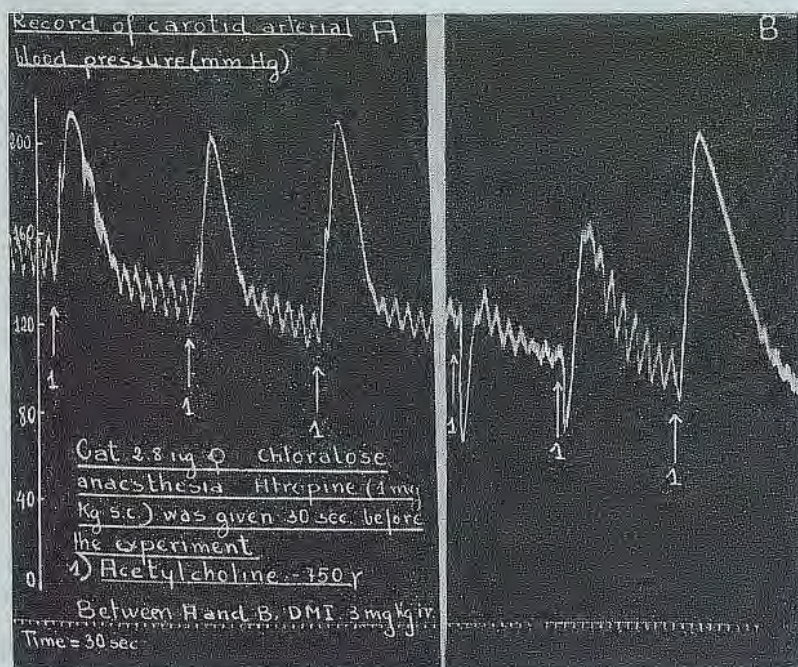 Record of carotid arterial A
blood pressure (mm Hg)
B
200
160
120
80
40
0
1
1
1
1
1
1
Cat 2.8 ug ♀ Chloralose
anaesthesia Atropine (1 mg
Kg s.c.) was given 30 sec. before
the experiment
1) Acetylcholine - 750 γ
Between A and B, DMI. 3 mg Kg iv.
Time = 30 sec